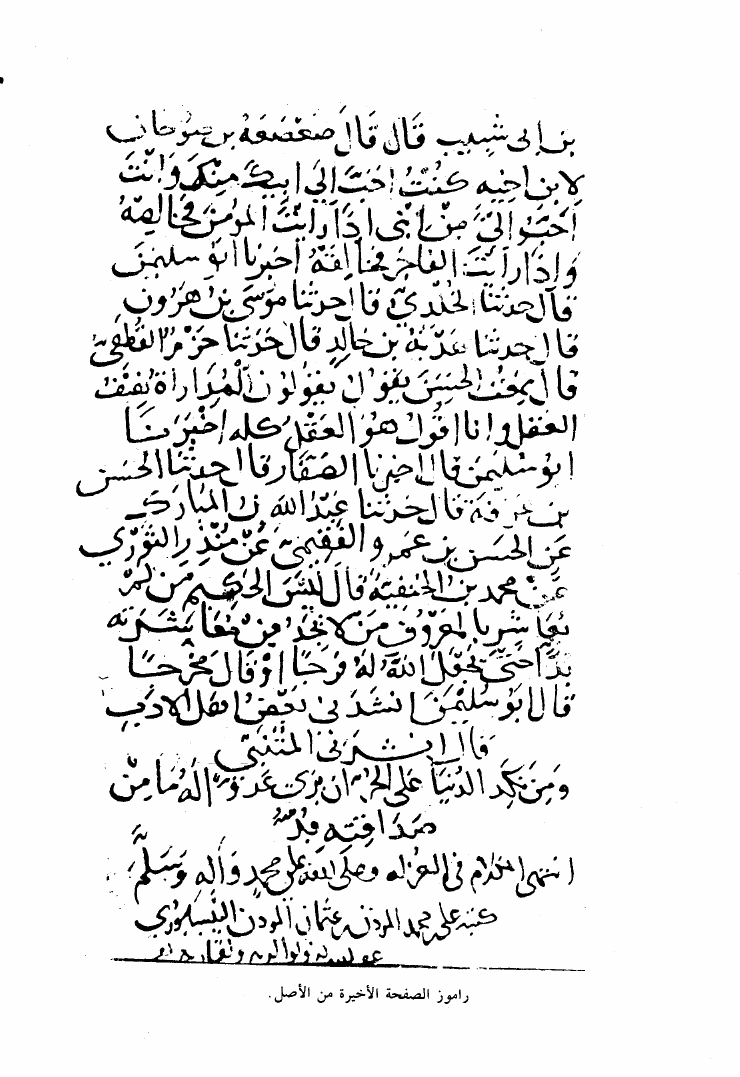 بن ابي شبيب قال قال صعصعة بن صوحان
لابن اخيه كنت احب الي ابيك منك وانت
احب الي من ابني اذا رايت المؤمن فخالصه
واذا رايت الفاجر فخالقه اخبرنا ابو سليمن
قال حدثنا الخلدي قال حدثنا موسى بن هرون
قال حدثنا هدبة بن خالد قال حدثنا حزم القطعي
قال سمعت الحسن يقول يقولون المداراة نصف
العقل وانا اقول هو العقل كله اخبرنا
ابو سليمن قال اخبرنا الصفار قال حدثنا الحسن
بن عرفة قال حدثنا عبد الله بن المبارك
عن الحسن بن عمرو الفقيمي عن منذر الثوري
عن محمد بن الحنفية قال ليس الحكيم من لم
يعاشر بالمعروف من لا يجد من معاشرته
بدا حتى يجعل الله له فرجا او قال مخرجا
قال ابو سليمن انشدني بعض اهل الادب
قال انشدني المتنبي
ومن نكد الدنيا على الحر ان يرى عدوا له ما من
صداقته بد
انتهى الكلام في العزله وصلى الله على محمد واله وسلم
كتبه علي محمد المؤذن بن عثمان المؤذن النيسابوري
راموز الصفحة الأخيرة من الأصل.